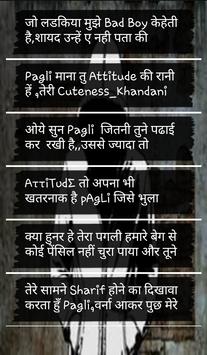 जो लडकिया मुझे Bad Boy केहेती
है,शायद उन्हें ए नही पता की
Pagli माना तु Attitude की रानी
हें ,तेरी Cuteness_Khandani
ओये सुन Pagli जितनी तुने पढाई
कर रखी है,,उससे ज्यादा तो
AттiTudΣ तो अपना भी
खतरनाक है pAgLi जिसे भुला
क्या हुनर हे तेरा पगली हमारे बेग से
कोई पेंसिल नहीं चुरा पाया और तूने
तेरे सामने Sharif होने का दिखावा
करता हूँ Pagli,वर्ना आकर पुछ मेरे